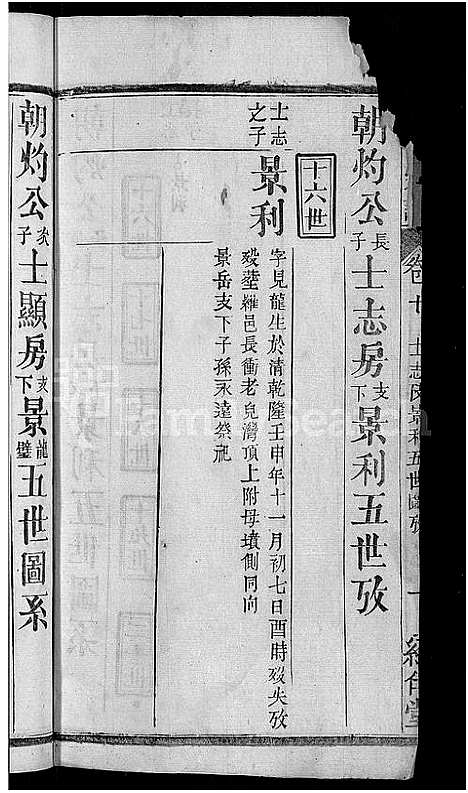 卷七 士志房景利五世圖攷 一
朝灼公長子士志房支下景利五世攷
十六世
士志之子 景利
字見龍生於清乾隆壬申年十一月初七日酉時歿失攷
歿塟羅邑長衝老皃灣頂上附母墳側同向
景岳支下子孫永遠祭祀
朝灼公次子士顯房支下景龍璧五世圖系